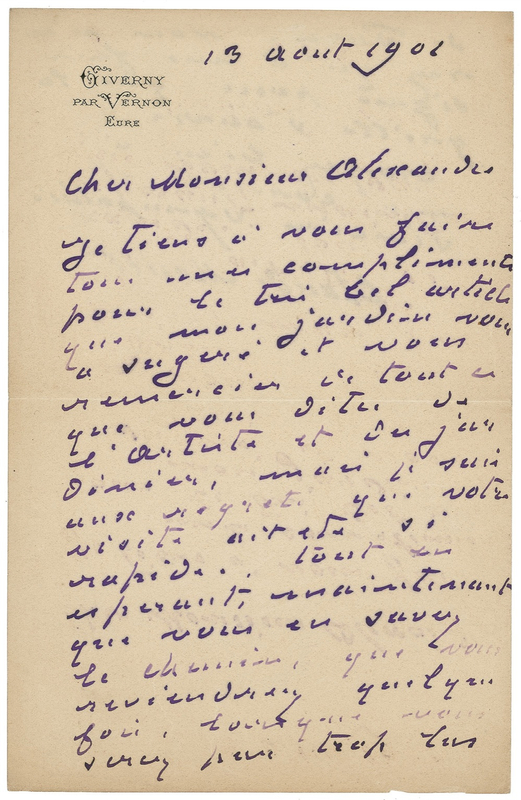 13 aout 1901
GIVERNY
PAR VERNON
EURE
Cher Monsieur Alexandre
Je tiens à vous faire
tous mes compliments
pour le très bel article
que mon jardin vous
a sugeré et vous
remercier de tout ce
que vous dites de
l'artiste et du jar
dinier, mais je suis
aux regrets que votre
visite ait été si
rapide. tout en
esperant, maintenant
que vous en savez
le chemin, que vous
reviendrez quelque
fois, lorsque vous
serez pas trop